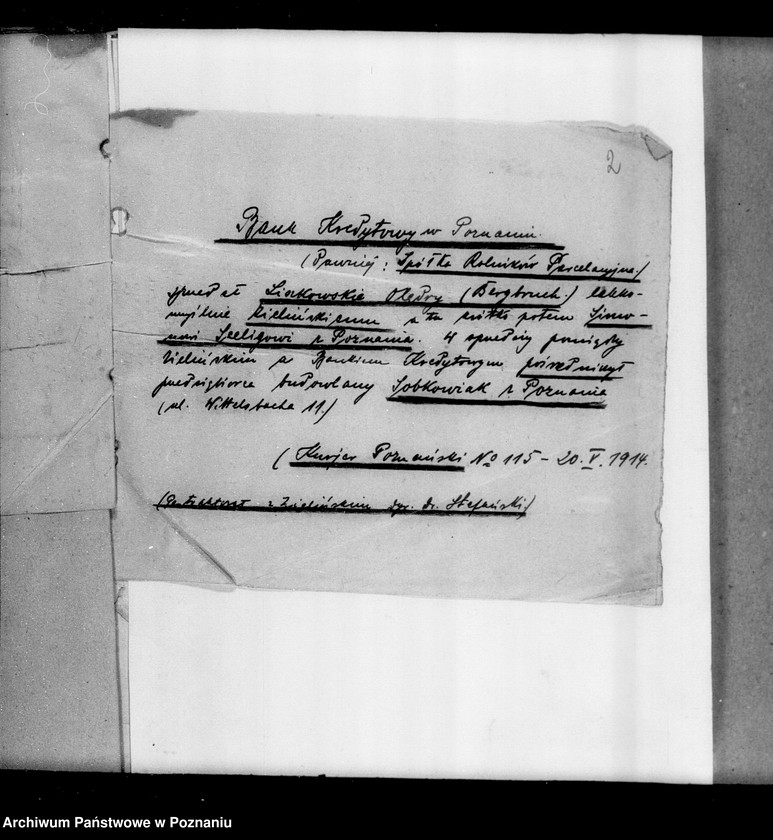 2
Bank Kredytowy w Poznaniu.
(Dawniej: Spółka Rolników Parcelacyjna.)
sprzedał Liszkowskie Olędry (Bergbruch.) lekko-
myślnie Zielińskiemu a ten krótko potem Simo-
nowi Seeligowi z Poznania. W sprzedaży pomiędzy
Zielińskim a Bankiem Kredytowym pośredniczył
przedsiębiorca budowlany Sobkowiak z Poznania
(ul. Wittelsbacha 11.)
(Kurjer Poznański No 115 – 20. V. 1914.
Zielińskim dyr. dr. Stefański.)
Archiwum Państwowe w Poznaniu